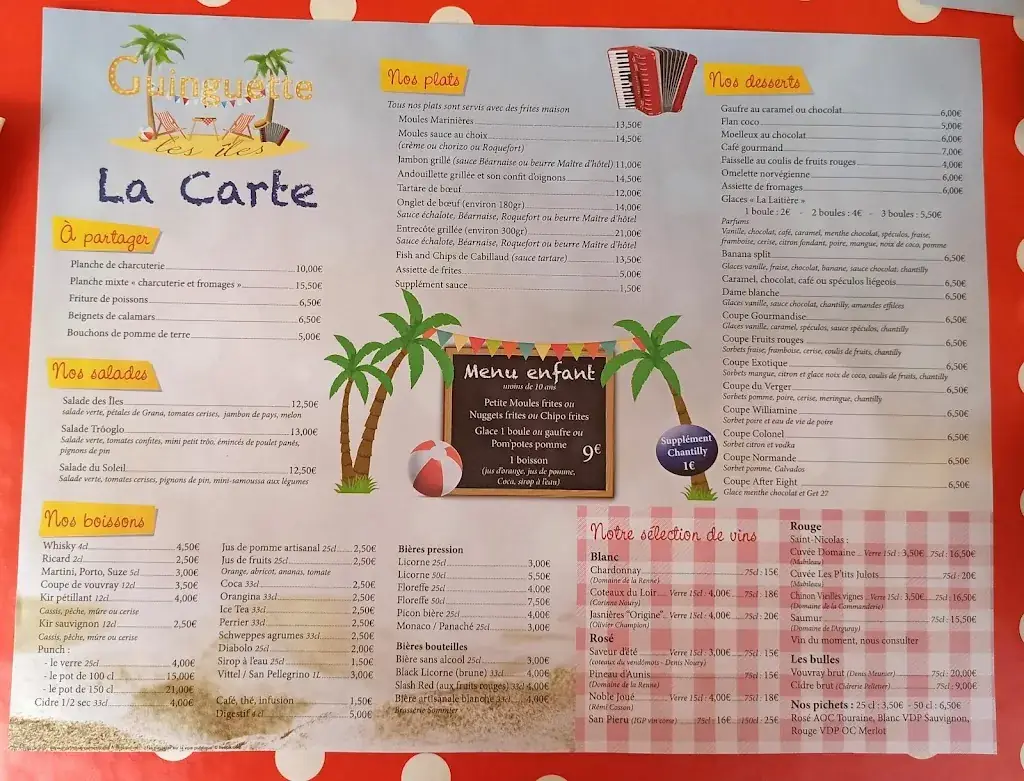 Guinguette
les îles
La Carte
À partager
Planche de charcuterie 10,00€
Planche mixte « charcuterie et fromages » 15,50€
Friture de poissons 6,50€
Beignets de calamars 6,50€
Bouchons de pomme de terre 5,00€
Nos salades
Salade des Îles 12,50€
salade verte, pétales de Grana, tomates cerises, jambon de pays, melon
Salade Tróoglo 13,00€
Salade verte, tomates confites, mini petit trôo, émincés de poulet panés,
pignons de pin
Salade du Soleil 12,50€
Salade verte, tomates cerises, pignons de pin, mini-samoussa aux légumes
Nos plats
Tous nos plats sont servis avec des frites maison
Moules Marinières 13,50€
Moules sauce au choix 14,50€
(crème ou chorizo ou Roquefort)
Jambon grillé (sauce Béarnaise ou beurre Maître d'hôtel) 11,00€
Andouillette grillée et son confit d'oignons 14,50€
Tartare de bœuf 12,00€
Onglet de bœuf (environ 180gr) 14,00€
Sauce échalote, Béarnaise, Roquefort ou beurre Maître d'hôtel
Entrecôte grillée (environ 300gr) 21,00€
Sauce échalote, Béarnaise, Roquefort ou beurre Maître d'hôtel
Fish and Chips de Cabillaud (sauce tartare) 13,50€
Assiette de frites 5,00€
Supplément sauce 1,50€
Menu enfant
moins de 10 ans
Petite Moules frites ou
Nuggets frites ou Chipo frites
Glace 1 boule ou gaufre ou
Pom'potes pomme
9€
1 boisson
(jus d'orange, jus de pomme,
Coca, sirop à l'eau)
Supplément
Chantilly
1€
Nos desserts
Gaufre au caramel ou chocolat 6,00€
Flan coco 5,00€
Moelleux au chocolat 6,00€
Café gourmand 7,00€
Faisselle au coulis de fruits rouges 4,00€
Omelette norvégienne 6,00€
Assiette de fromages 6,00€
Glaces « La Laitière »
1 boule : 2€ - 2 boules : 4€ - 3 boules : 5,50€
Parfums
Vanille, chocolat, café, caramel, menthe chocolat, spéculos, fraise,
framboise, cerise, citron fondant, poire, mangue, noix de coco, pomme
Banana split 6,50€
Glaces vanille, fraise, chocolat, banane, sauce chocolat, chantilly
Caramel, chocolat, café ou spéculos liégeois 6,50€
Dame blanche 6,50€
Glaces vanille, sauce chocolat, chantilly, amandes effilées
Coupe Gourmandise 6,50€
Glaces vanille, caramel, spéculos, sauce spéculos, chantilly
Coupe Fruits rouges 6,50€
Sorbets fraise, framboise, cerise, coulis de fruits, chantilly
Coupe Exotique 6,50€
Sorbets mangue, citron et glace noix de coco, coulis de fruits, chantilly
Coupe du Verger 6,50€
Sorbets pomme, poire, cerise, meringue, chantilly
Coupe Williamine 6,50€
Sorbet poire et eau de vie de poire
Coupe Colonel 6,50€
Sorbet citron et vodka
Coupe Normande 6,50€
Sorbet pomme, Calvados
Coupe After Eight 6,50€
Glace menthe chocolat et Get 27
Nos boissons
Whisky 4cl 4,50€
Ricard 2cl 2,50€
Martini, Porto, Suze 5cl 3,00€
Coupe de vouvray 12cl 3,50€
Kir pétillant 12cl 4,00€
Cassis, pêche, mûre ou cerise
Kir sauvignon 12cl 2,50€
Cassis, pêche, mûre ou cerise
Punch :
- le verre 25cl 4,00€
- le pot de 100 cl 15,00€
- le pot de 150 cl 21,00€
Cidre 1/2 sec 33cl 4,00€
Jus de pomme artisanal 25cl 2,50€
Jus de fruits 25cl 2,50€
Orange, abricot, ananas, tomate
Coca 33cl 2,50€
Orangina 33cl 2,50€
Ice Tea 33cl 2,50€
Perrier 33cl 2,50€
Schweppes agrumes 33cl 2,50€
Diabolo 25cl 2,00€
Sirop à l'eau 25cl 1,50€
Vittel / San Pellegrino 1L 3,00€
Café, thé, infusion 1,50€
Digestif 4 cl 5,00€
Bières pression
Licorne 25cl 3,00€
Licorne 50cl 5,50€
Floreffe 25cl 4,00€
Floreffe 50cl 7,50€
Picon bière 25cl 4,00€
Monaco / Panaché 25cl 3,00€
Bières bouteilles
Bière sans alcool 25cl 3,00€
Black Licorne (brune) 33cl 4,00€
Slash Red (aux fruits rouges) 33cl 4,00€
Bière artisanale blanche 33cl 4,00€
Brasserie Sommier
Notre sélection de vins
Blanc
Chardonnay 75cl : 15€
(Domaine de la Renne)
Coteaux du Loir Verre 15cl : 4,00€ 75cl : 18€
(Corinne Noury)
Jasnières "Origine" Verre 15cl : 4,00€ 75cl : 20€
(Olivier Champion)
Rosé
Saveur d'été Verre 15cl : 3,00€ 75cl : 15€
(coteaux du vendômois - Denis Noury)
Pineau d'Aunis 75cl : 15€
(Domaine de la Renne)
Noble Joué Verre 15cl : 4,00€ 75cl : 18€
(Rémi Cosson)
San Pieru (IGP vin corse) 75cl : 16€ 150cl : 25€
Rouge
Saint-Nicolas :
Cuvée Domaine Verre 15cl : 3,50€ 75cl : 16,50€
(Mabileau)
Cuvée Les P'tits Julots 75cl : 20€
(Mabileau)
Chinon Vieilles vignes Verre 15cl : 3,50€ 75cl : 16,50€
(Domaine de la Commanderie)
Saumur 75cl : 15,50€
(Domaine de l'Arguray)
Vin du moment, nous consulter
Les bulles
Vouvray brut (Denis Meunier) 75cl : 20,00€
Cidre brut (Cidrerie Pelletier) 75cl : 9,00€
Nos pichets : 25 cl : 3,50€ - 50 cl : 6,50€
Rosé AOC Touraine, Blanc VDP Sauvignon,
Rouge VDP OC Merlot